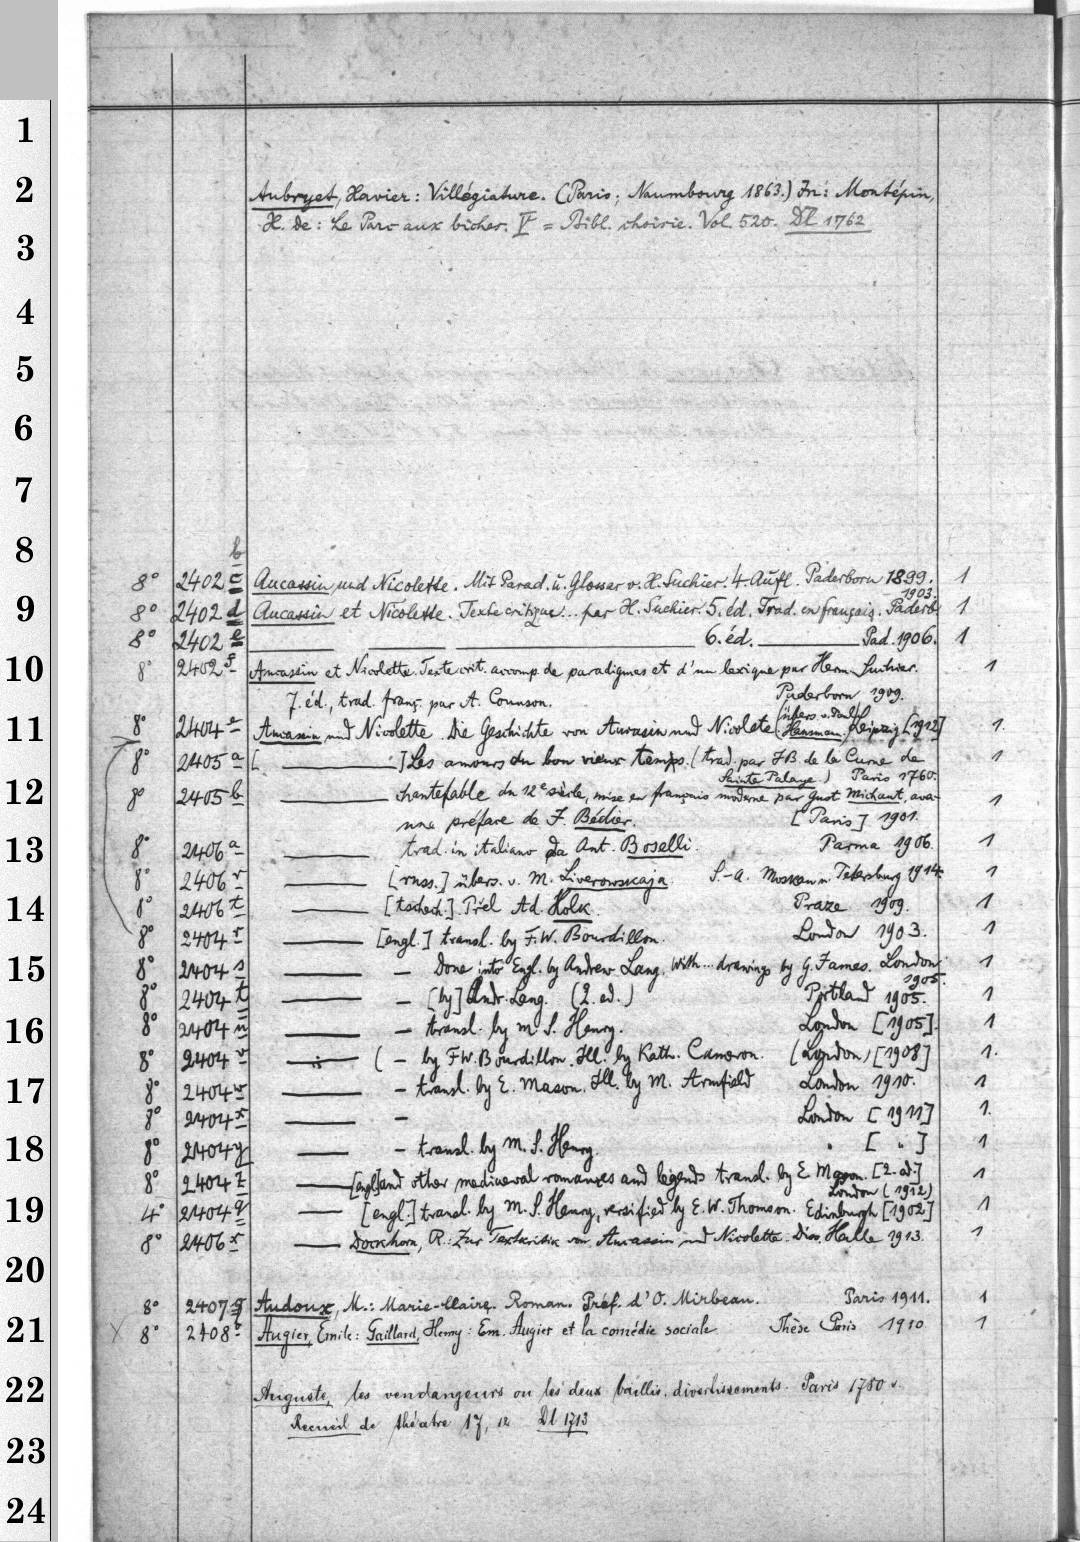 1
2
Aubryet, Xavier: Villégiature. (Paris; Naumbourg 1863.) In: Montépin,
X. de: Le Parc aux biches. V = Bibl. choisie. Vol. 520. DZ 1762
3
4
5
6
7
8
b
8° 2402 c Aucassin und Nicolette. Mit Parad. u. Glossar v. H. Suchier. 4. Aufl. Paderborn 1899. 1
9
1903.
8° 2402 d Aucassin et Nicolette. Texte critique... par H. Suchier. 5. éd. Trad. en français. Paderb 1
8° 2402 e 6. éd. Pad. 1906. 1
10
8° 2402 f Aucassin et Nicolette. Texte crit. accomp. de paradigmes et d'un lexique par Herm. Suchier. 1
7. éd., trad. franç. par A. Counson. Paderborn 1909.
11
8° 2404 e Aucassin und Nicolette. Die Geschichte von Aucassin und Nicolete (übers. v. Paul Hansmann) Leipzig [1912] 1.
8° 2405 a [ ] Les amours du bon vieux temps. (trad. par J B. de la Curne de 1
Sainte Palaye) Paris 1760.
12
8° 2405 b chantefable du 12e siècle, mise en français moderne par Gust Michaut, avec 1
une préface de J. Bédier. [Paris] 1901.
13
8° 2406 a trad. in italiano da Ant. Boselli. Parma 1906. 1
8° 2406 r [russ.] übers. v. M. Liverowskaja S.-a. Moskau u. Petersburg 1914. 1
14
8° 2406 t [tschech.] Přel Ad. Holk. Praze 1909. 1
8° 2404 r [engl.] transl. by F.W. Bourdillon. London 1903. 1
15
8° 2404 s — Done into Engl. by Andrew Lang. With... drawings by G. James. London 1
1905.
8° 2404 t — [by] Andr. Lang. (2. ed.) Portland 1905. 1
16
8° 2404 u — transl. by M. S. Henry. London [1905]. 1
8° 2404 v ( — by F.W. Bourdillon. Ill. by Kath. Cameron. (London) [1908] 1.
17
8° 2404 w — transl. by E. Mason. Ill. by M. Armfield London 1910. 1
8° 2404 x — London [1911] 1.
18
8° 2404 y — transl. by M. S. Henry. " [ " ] 1
8° 2404 z [engl.] and other mediaeval romances and legends transl. by E. Mason. [2. ed.] 1
London (1912)
19
4° 2404 q [engl.] transl. by M. S. Henry, versified by E. W. Thomson. Edinburgh [1902] 1
8° 2406 x Dockhorn, R.: Zur Textkritik von Aucassin und Nicolette. Diss. Halle 1913. 1
20
8° 2407 g Audoux, M.: Marie-Claire. Roman. Préf. d'O. Mirbeau. Paris 1911. 1
21
X 8° 2408 Augier, Emile: Gaillard, Henry: Em. Augier et la comédie sociale Thèse Paris 1910 1
22
Auguste, les vendangeurs ou les deux baillis. divertissements. Paris 1780
Recueil de théâtre 17, 12 Dl 1713
23
24